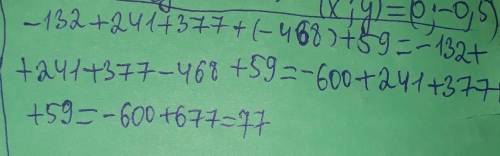 (x; y) = (0; -0,5)
-132+241+377+(-468)+59=-132+
+241+377-468+59=-600+241+377+
+59=-600+677=77